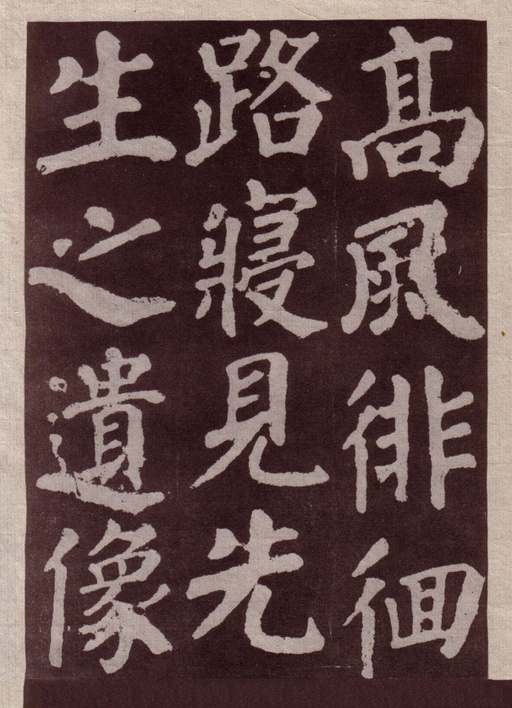 高風徘徊
路寢見先
生之遺像